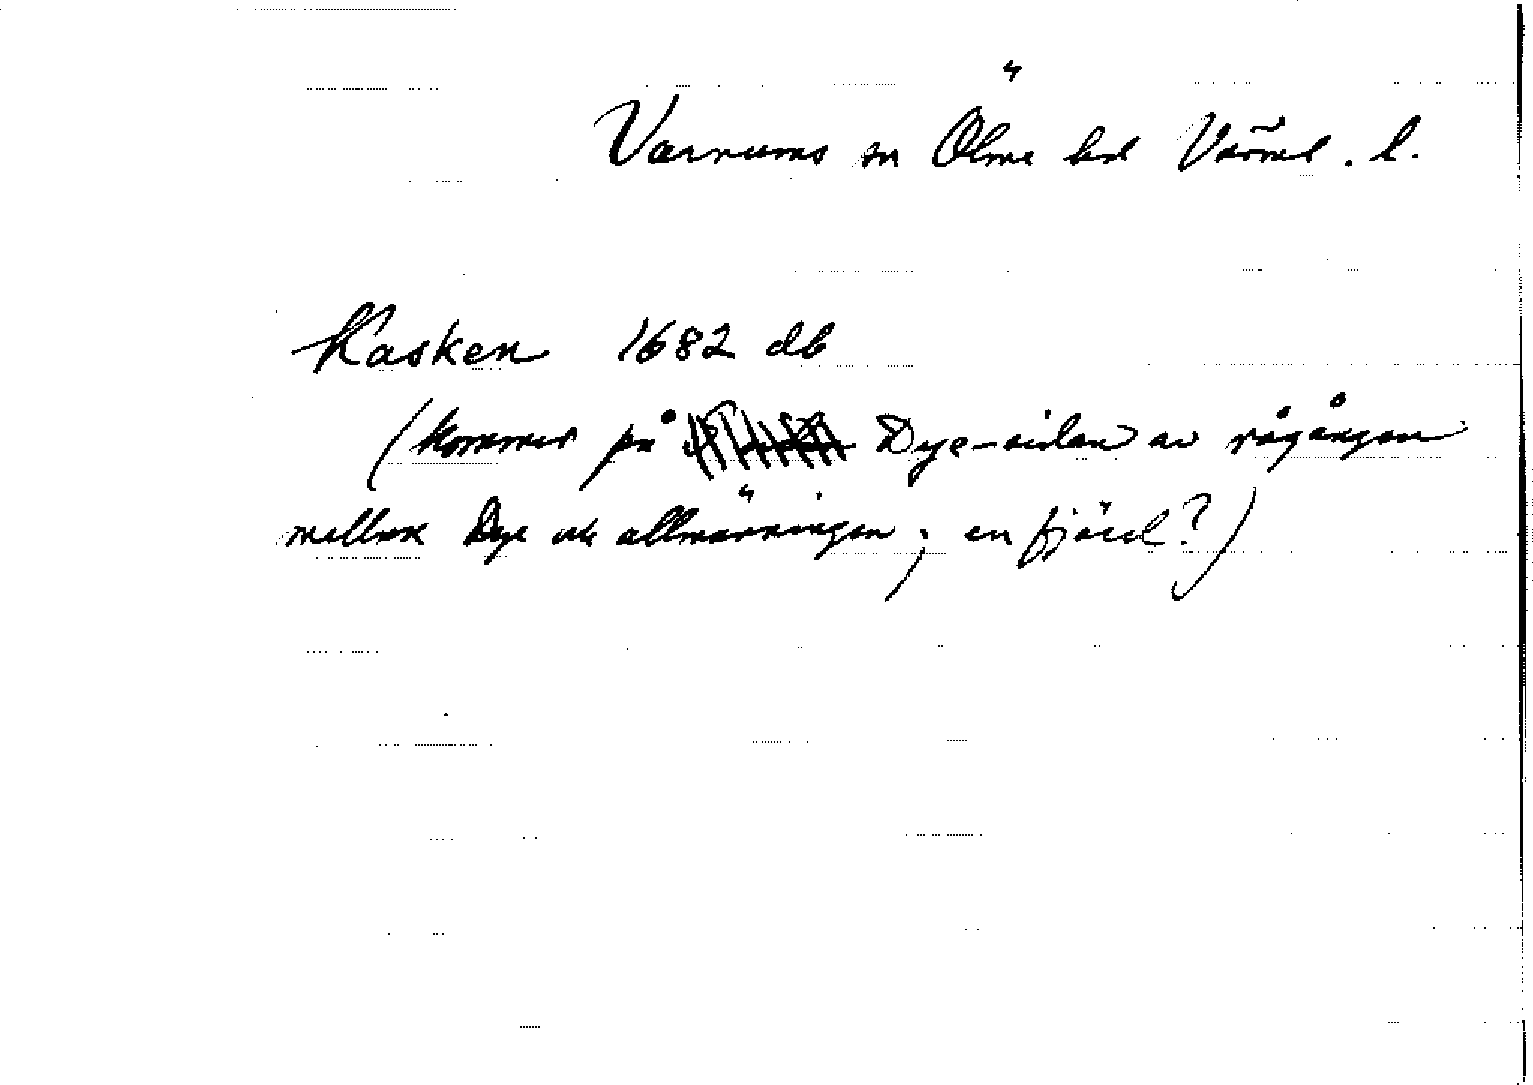 Varnums sn Ölme hd Värml. l.
Kasken 1682 db
(kommer på Dye-sidan av rågången
mellan Dye och allmänningen; en fjärd?)